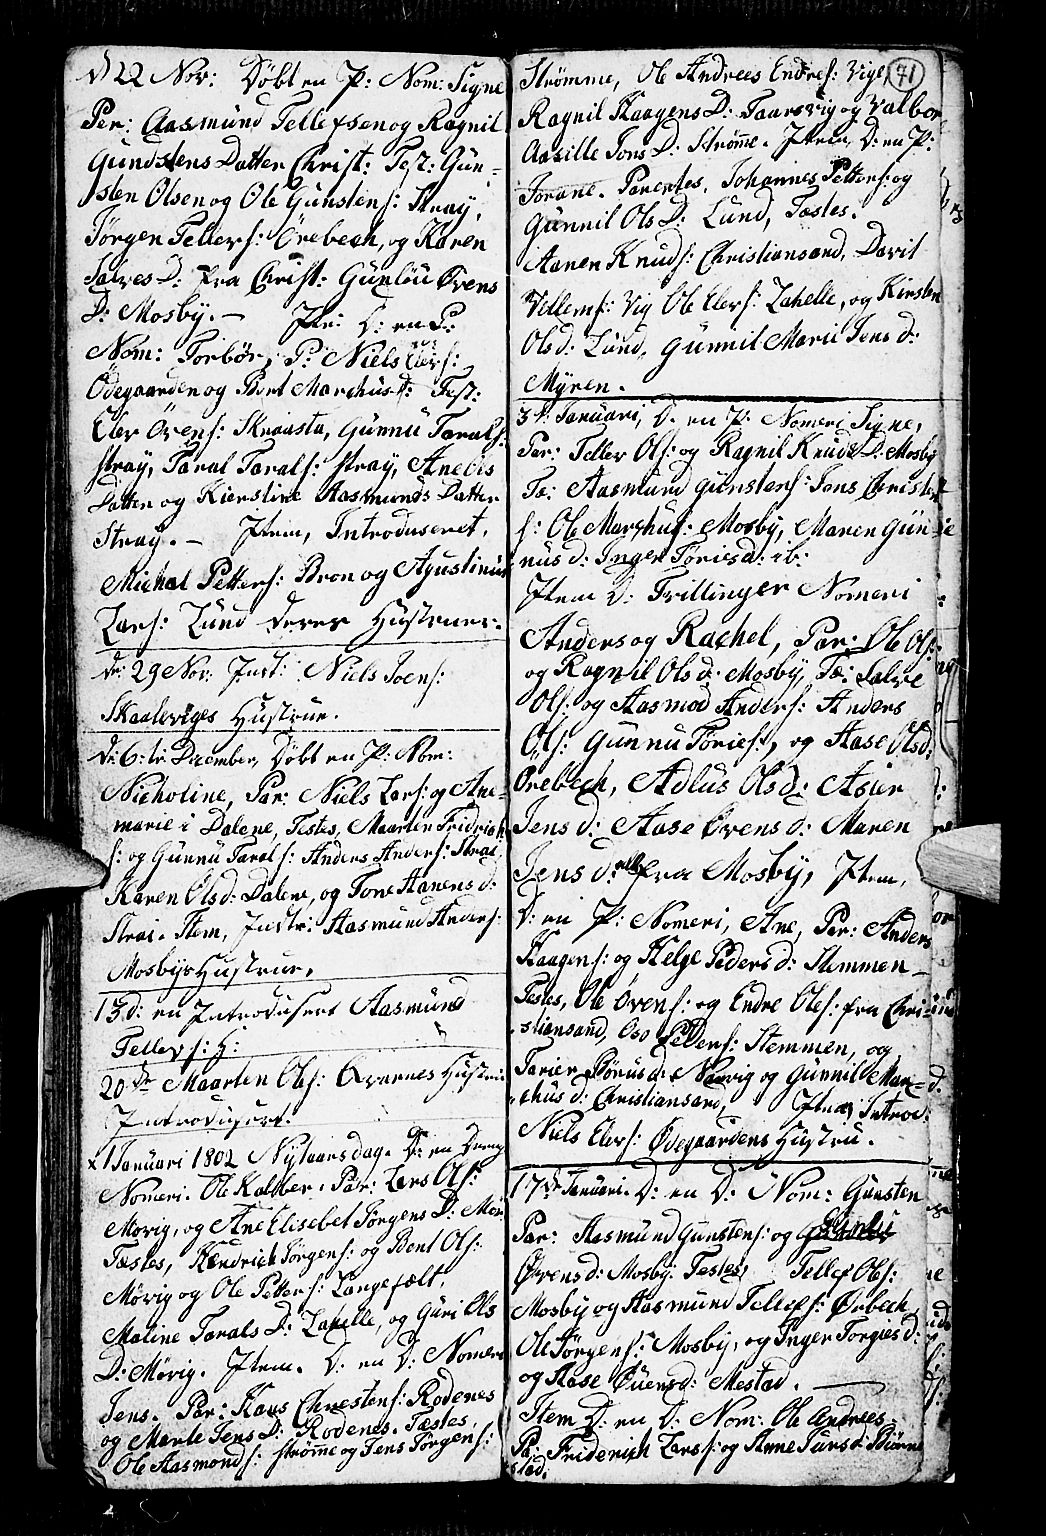 d 22 Nov: Döbt en P: Nom: Signe
Per: Aasmund Tellefsen og Ragnil
Gundstens Datter Christ: Test: Gun-
sten Olsen og Ole Gunstens: Stray,
Jörgen Tellefs: Örebech, og Karen
Salves D: fra Christ: Gunlöu Övens
D: Mosby. — Jte: D: en P:
Nom: Torbör, P: Niels Elefs:
Ödegaarden og Bert Marchus d: Test:
Elev Övens: Skraasta, Gunnu Tarals:
stray, Taral Tarals: stray, Anebis
Datter og Kierstine Aasmunds Datter
Stray. — Jtem, Introduseret,
Michal Petters: Bron og Agustinus
Lars: Lund Derer Hustruer.
Dr: 29 Nov: Just: Niels Joens:
Skaaleviges Hustrue.
Dr: 6: te December, Döbt en P: Nom:
Nicholine, Par: Niels Lars: og Ane-
marie i Dalene, Testes, Maarten Fridrich
s: og Gunnu Tarals: Anders Anders: Strai
Karen Ols d: Dalene, og Tone Aanens d:
Strai. Item, Instr: Aasmund Anders:
Mosbys Hustrue,
13 d: en Introdusert Aasmund
Tellefs: H:
20 de Maarten Ols: Qvarnes Hustrue
Introdusert.
1 Januari 1802 Nytaarsdag. D: en Dreng
Nomeri. Ole Kalleer. Par: Lars Ols:
Mörig, og Ane Elisebet Jörgens D: Mör
Tæstes, Hendrick Jörgens: og Bent Ols:
Mörig og Ole Petters: Langefælt,
Maline Tarals D: Lahelle, og Guri Ols
D: Mörig. Jtem. D: en D: Nomeri
Jens. Par: Hans Chrestens: Rodenes
og Marte Jens D: Rodenes. Tæstes,
Ole Aasmonds: Strömme og Jens Jörgens:
71
Strömme, Ole Andrees Endres: Vige,
Ragnil Haagens D: Taarsvig og Valbor
Aasille Jons D: Strömme. Jtem, D: en P:
Jorane. Parentes, Johannes Petters: og
Gunnil Ols D: Lund, Tæstes.
Aanen Knuds: Christiansand, David
Villems: Vig Ole Elefs: Lahelle, og Kirsten
Ols d: Lund, Gunnil Marii Jens d:
Myren.
3 d: Januari, D: en P: Nomeri Signe,
Par: Tellev Ols: og Ragnil Knuds D: Mosby
Tæ: Aasmund Gunstens: Jons Christen
s: Ole Marchus: Mosby, Maren Gun-
nus d: Inger Töries d: ib:
Jtem D: Trillinger Nomeri
Anders og Rachel, Par: Ole Ols:
og Ragnil Ols d: Mosby, Tæ: Salve
Ols: og Aasmod Anders: Anders
Ols: Gunnu Töries:, og Aase Ols d:
Örebech, Adlus Ols d: Asier
Jens d: Aase Övens d: Maren
Jens d: alle fra Mosby, Jtem,
D: en P: Nomeri, Ane, Par: Anders
Haagens: og Helge Peders d: Stemmen
Testes, Ole Övens: og Endre Ols: fra Chri-
stiansand, Oso Peders: Stemmen, og
Tarier Börus d: Narvig og Gunnil Mar-
chus d: Christiansand, Jtem, Introd:
Niels Elefs: Ödegaardens Hustru.
17 de Januari. D: en D: Nom: Gunsten
Par: Aasmund Gunstens: og Gunlu
Övens d: Mosby. Testes, Tellef Ols:
Mosby og Aasmund Tellefs: Örbech,
Ole Jörgens: Mosby, og Inger Torgies d:
og Aase Övens d: Mestad. —
Item D: en D: Nom: Ole Andrees
Pa: Friderich Lars: og Anne Jurs d: Biörne
stad: